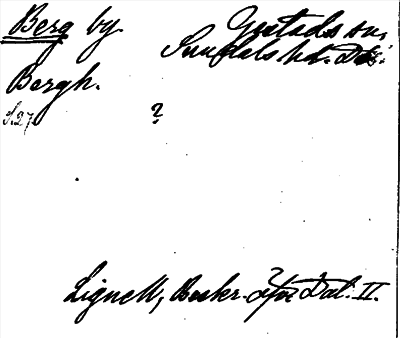 Berg by.
Gestads sn,
Sundals hd. Dls.
Bergh.
?
Lignell, Beskr. öfv. Dal. II.